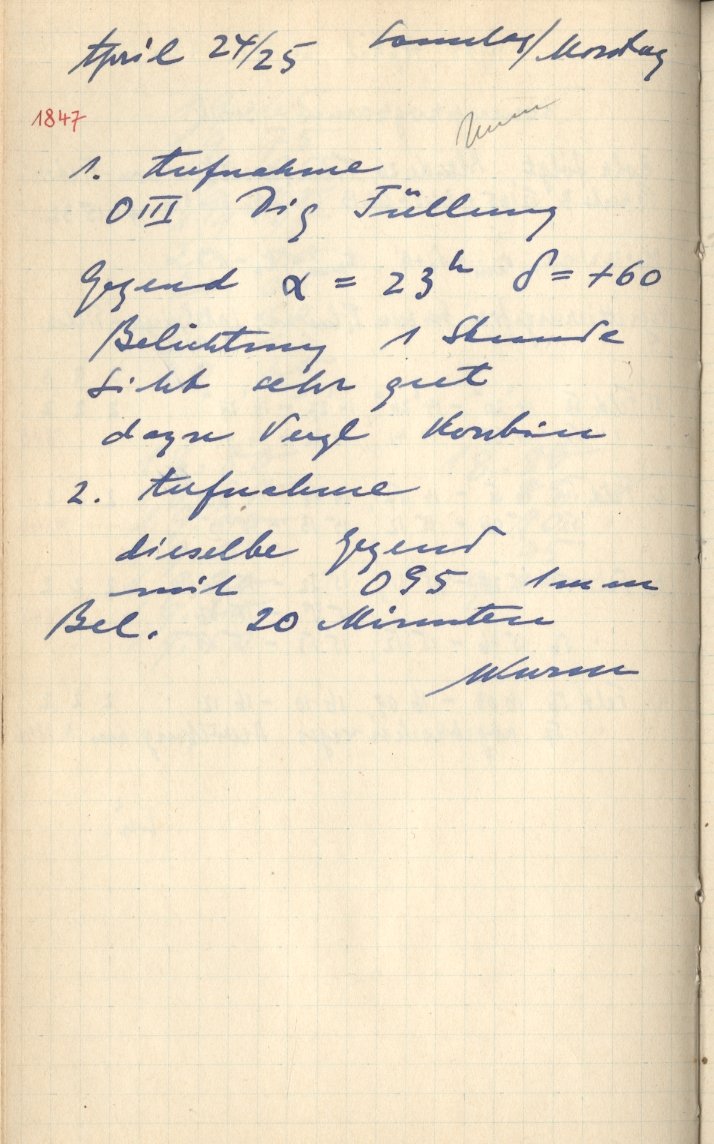 April 24/25 Sonntag/Montag
1847
1. Aufnahme
O III Dig Füllung
Gegend α = 23ʰ δ = +60
Belichtung 1 Stunde
Sicht sehr gut
dazu Vergl
2. Aufnahme
dieselbe Gegend
mit 1mm
Bel. 20 Minuten
Wurm